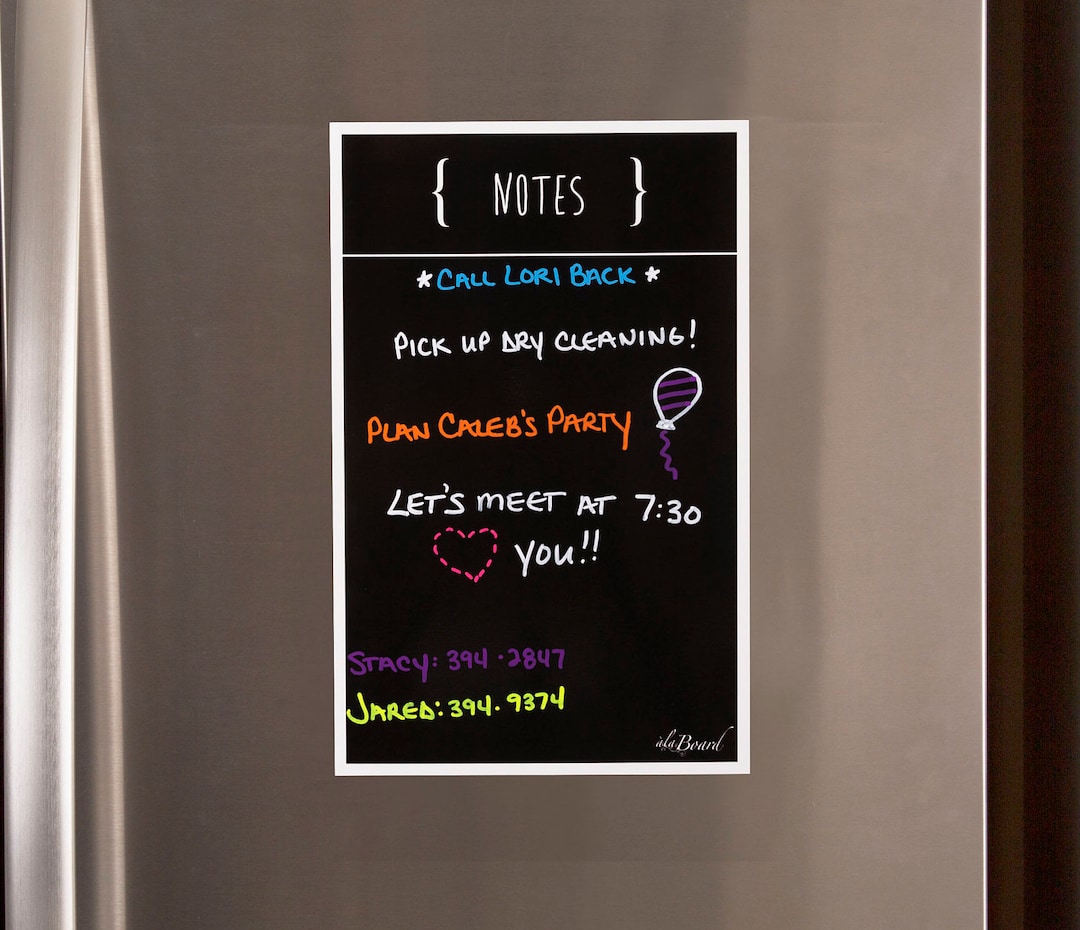 { NOTES }
*CALL LORI BACK*
PICK UP DRY CLEANING!
PLAN CALEB'S PARTY
LET'S MEET AT 7:30
YOU!!
STACY: 394-2847
JARED: 394.9374
àlaBoard